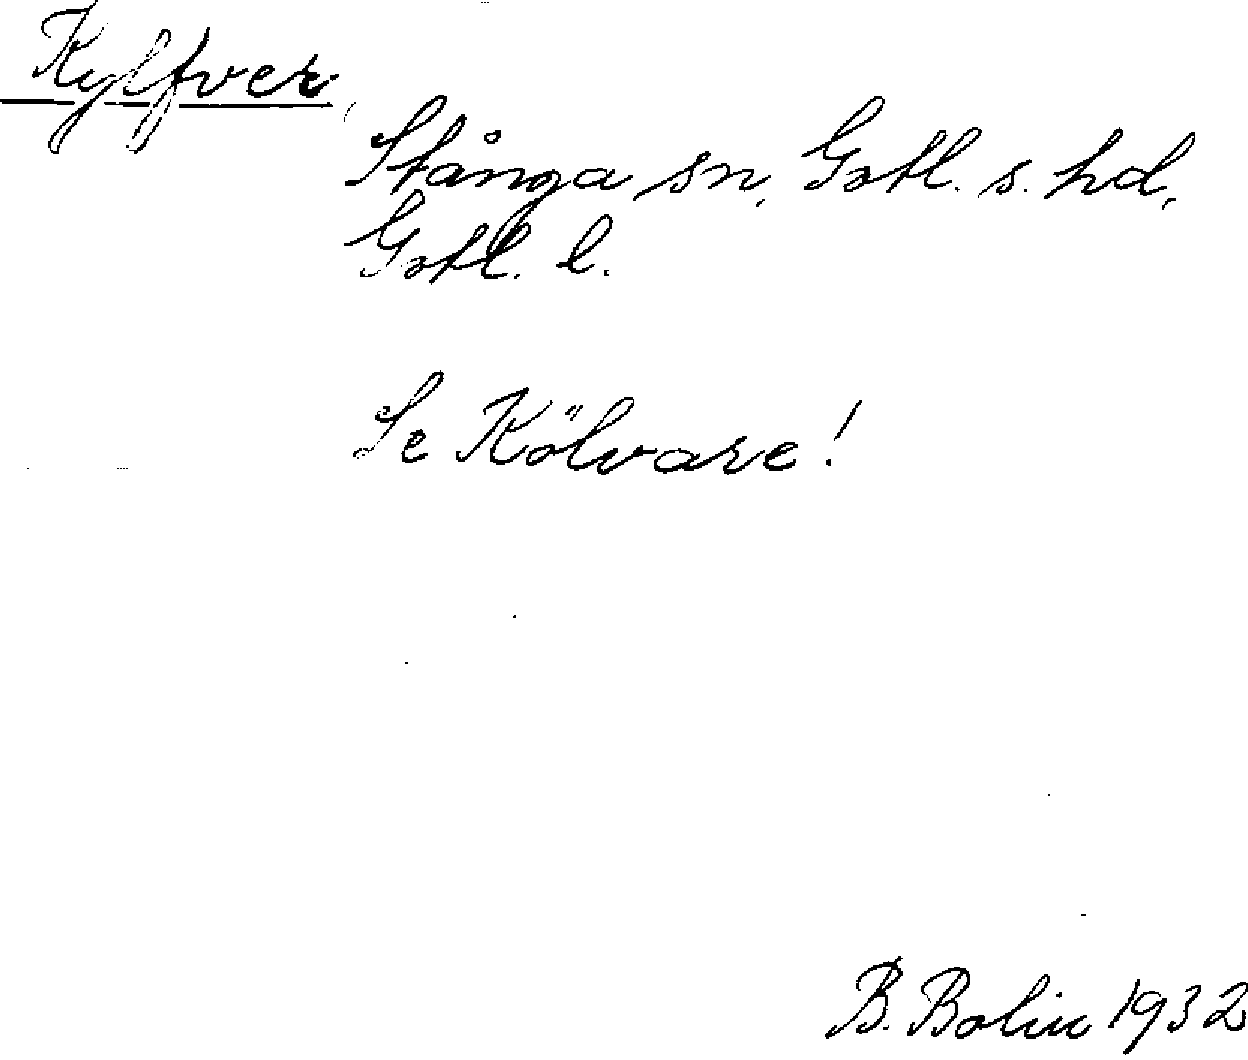 Kylfver,
Stånga sn, Gotl. s. hd,
Gotl. l.
Se Kölvare!
B. Bolin 1932